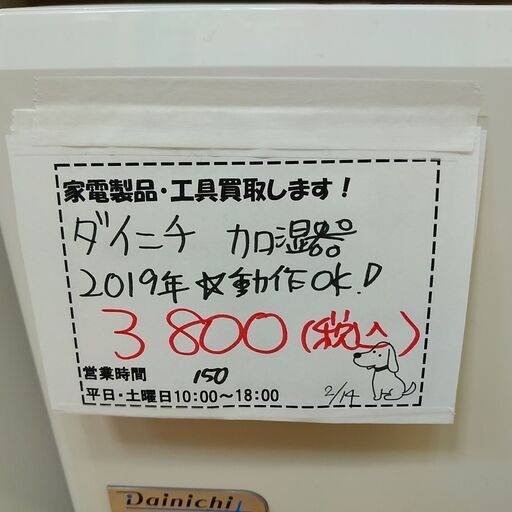 家電製品・工具買取します！
ダイニチ 加湿器
2019年☆動作OK!
3800(税込)
営業時間 150
平日・土曜日10:00～18:00
2/14
Dainichi